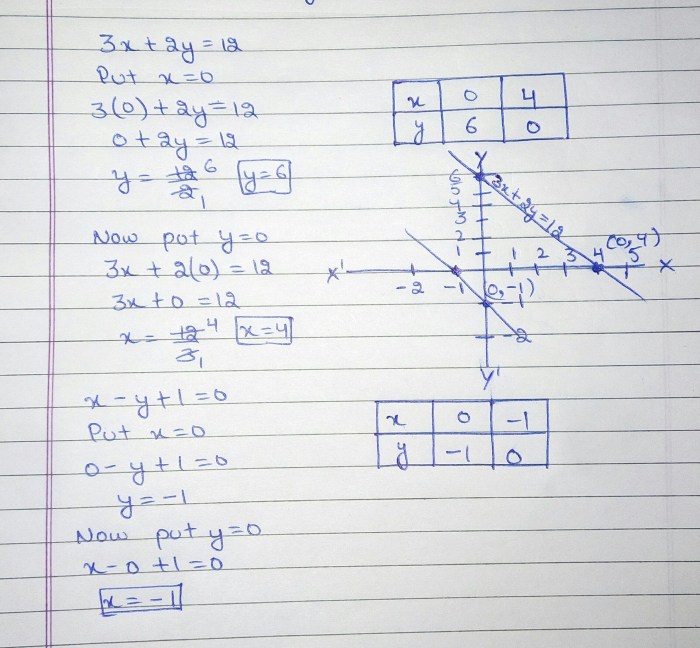 3x + 2y = 12
Put x = 0
3(0) + 2y = 12
0 + 2y = 12
y = 12/2 6 1 y = 6
Now put y = 0
3x + 2(0) = 12
3x + 0 = 12
x = 12/3 4 1 x = 4
x - y + 1 = 0
Put x = 0
0 - y + 1 = 0
y = -1
Now put y = 0
x - 0 + 1 = 0
x = -1
x 0 4
y 6 0
Y
6
5
4
3
2
1
3x + 2y = 12
(0,4)
X' -2 -1 1 2 3 4 5 X
(0,-1)
-1
-2
Y'
x 0 -1
y -1 0